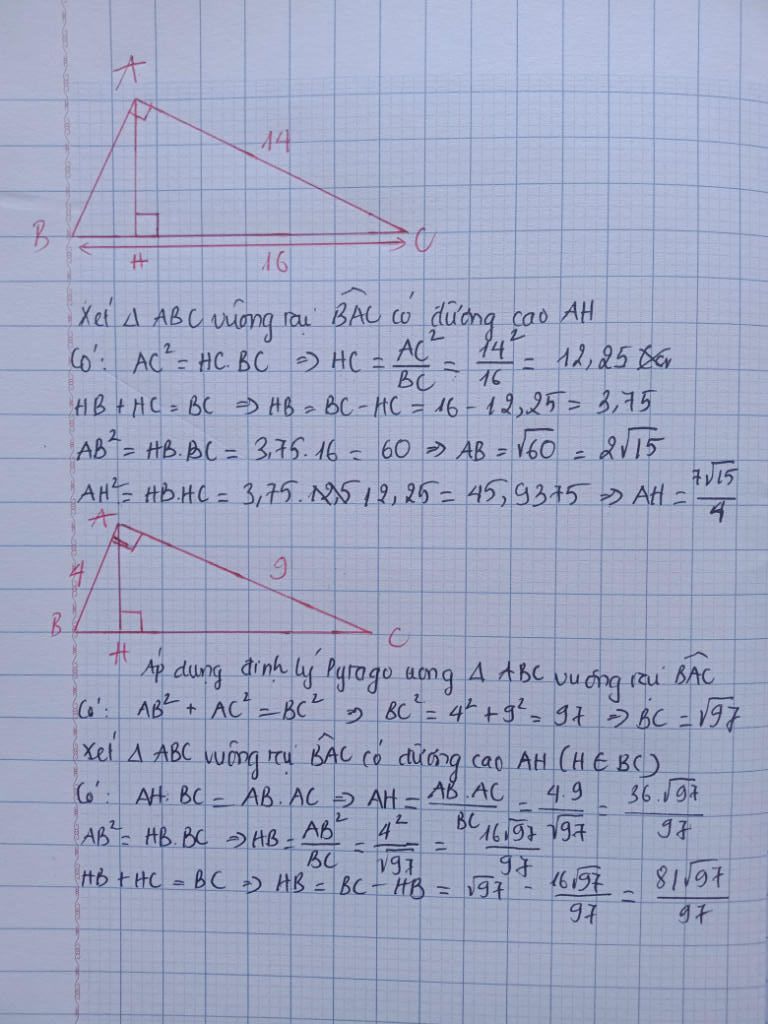 A
14
B
H
16
C
Xét Δ ABC vuông tại BAC có đường cao AH
Có: AC² = HC.BC ⇒ HC = AC²/BC = 14²/16 = 12,25
HB + HC = BC ⇒ HB = BC - HC = 16 - 12,25 = 3,75
AB² = HB.BC = 3,75.16 = 60 ⇒ AB = √60 = 2√15
AH² = HB.HC = 3,75. 12,25 = 45,9375 ⇒ AH = 7√15/4
A
4
9
B
H
C
Áp dụng định lý Pytago trong Δ ABC vuông tại BAC
Có: AB² + AC² = BC² ⇒ BC² = 4² + 9² = 97 ⇒ BC = √97
Xét Δ ABC vuông tại BAC có đường cao AH (H ∈ BC)
Có: AH.BC = AB.AC ⇒ AH = AB.AC/BC = 4.9/√97 = 36.√97/97
AB² = HB.BC ⇒ HB = AB²/BC = 4²/√97 = 16√97/97
HB + HC = BC ⇒ HB = BC - HB = √97 - 16√97/97 = 81√97/97